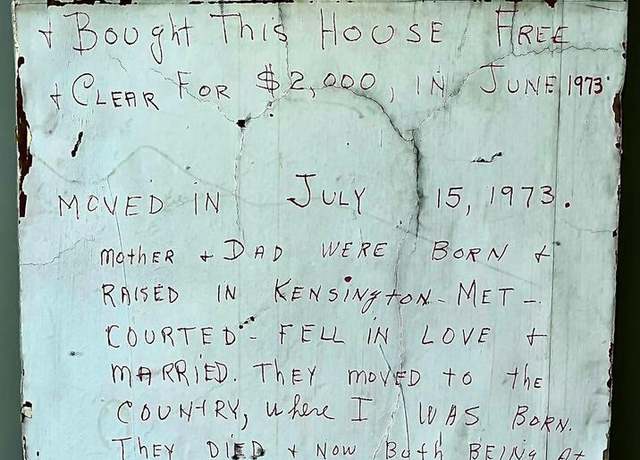 + Bought This House Free
+ Clear For $2,000, in June 1973
Moved in July 15, 1973.
Mother + Dad were born +
raised in Kensington - Met -
courted - fell in love +
married. They moved to the
country, where I was born.
They died + now both being at